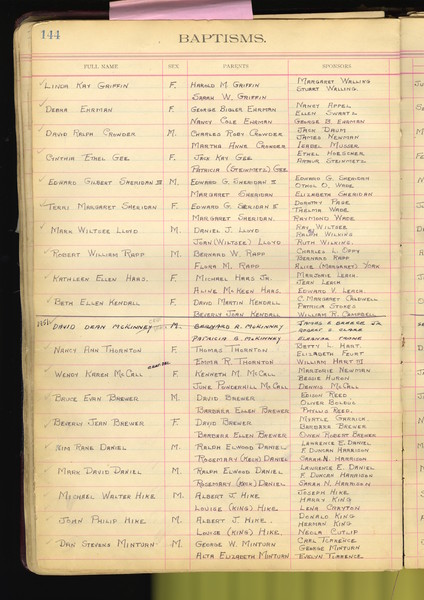 144
BAPTISMS.
FULL NAME SEX PARENTS SPONSORS
LINDA KAY GRIFFIN F. HAROLD M. GRIFFIN MARGARET WALLING
SARAH W. GRIFFIN STUART WALLING
DEBRA EHRMAN F. GEORGE BIGLER EHRMAN NANCY APPEL
ELLEN SWARTZ
NANCY COLE EHRMAN GEORGE EHRMAN
DAVID RALPH CROWDER M. CHARLES ROBY CROWDER JACK DAUM
JAMES NEWMAN
MARTHA ANNA CROWDER ISABEL MUSSER
CYNTHIA ETHEL GEE F. JACK KAY GEE ETHEL HOESCHER
PATRICIA (STEINMETZ) GEE ARTHUR STEINMETZ
EDWARD GILBERT SHERIDAN III M. EDWARD G. SHERIDAN II EDWARD G. SHERIDAN
OTHOL D. WADE
MARGARET SHERIDAN ELIZABETH SHERIDAN
TERRI MARGARET SHERIDAN F. EDWARD G. SHERIDAN II DOROTHY PAGE
THELMA WADE
MARGARET SHERIDAN. RAYMOND WADE
MARK WILTSEE LLOYD M. DANIEL J. LLOYD RAY WILTSEE
RALPH WILKINS
JOAN (WILTSEE) LLOYD RUTH WILKINS.
ROBERT WILLIAM RAPP M. BERNARD W. RAPP CHARLES OPPY
BERNARD RAPP
FLORA M. RAPP ALICE (MARGARET) YORK
KATHLEEN ELLEN HAAS. F. MICHAEL HAAS JR. MARJORIE LEACH.
JERN LEACH
ALINE McKEEN HAAS. EDWARD V. LEACH
BETH ELLEN KENDALL F. DAVID MARTIN KENDALL C. MARGARET CALDWELL
PATRICIA STOKES
BEVERLY JEAN KENDALL WILLIAM R. CAMPBELL
1951 DAVID DEAN McKINNEY M. BERNARD R. McKINNEY JAMES S. BARBEE JR.
ROBERT S. CLARE
PATRICIA G. McKINNEY ELEANOR PAYNE
NANCY ANN THORNTON F. THOMAS THORNTON BETTY L. HART.
ELIZABETH FEURT
EMMA R. THORNTON WILLIAM HART III
WENDY KAREN McCALL F. KENNETH M. McCALL MARJORIE NEWMAN
BESSIE HURON
JUNE PONDERHILL McCALL DENNIS McCALL
BRUCE EVAN BREWER M. DAVID BREWER EDISON REED
OLIVER BOLDUC
BARBARA ELLEN BREWER PHYLLIS REED.
BEVERLY JEAN BREWER F. DAVID BREWER MYRTLE GARRICK
BARBARA BREWER
BARBARA ELLEN BREWER OWEN ROBERT BREWER
KIM RANE DANIEL M. RALPH ELWOOD DANIEL LAWRENCE E. DANIEL.
F. DUNCAN HARRISON
ROSEMARY (KECK) DANIEL SARAH N. HARRISON
MARK DAVID DANIEL M. RALPH ELWOOD DANIEL LAWRENCE E. DANIEL
F. DUNCAN HARRISON.
ROSEMARY (KECK) DANIEL SARAH N. HARRISON
MICHAEL WALTER HIKE M. ALBERT J. HIKE JOSEPH HIKE
HARRY KING
LOUISE (KING) HIKE LENA CRAYTON
JOHN PHILIP HIKE M. ALBERT J. HIKE. DONALD KING
HERMAN KING
LOUISE (KING) HIKE. NEOLA CUTLIP
DAN STEVENS MINTURN M. GEORGE W. MINTURN CARL TORRENCE
GEORGE MINTURN
ALTA ELIZABETH MINTURN EVELYN TORRENCE